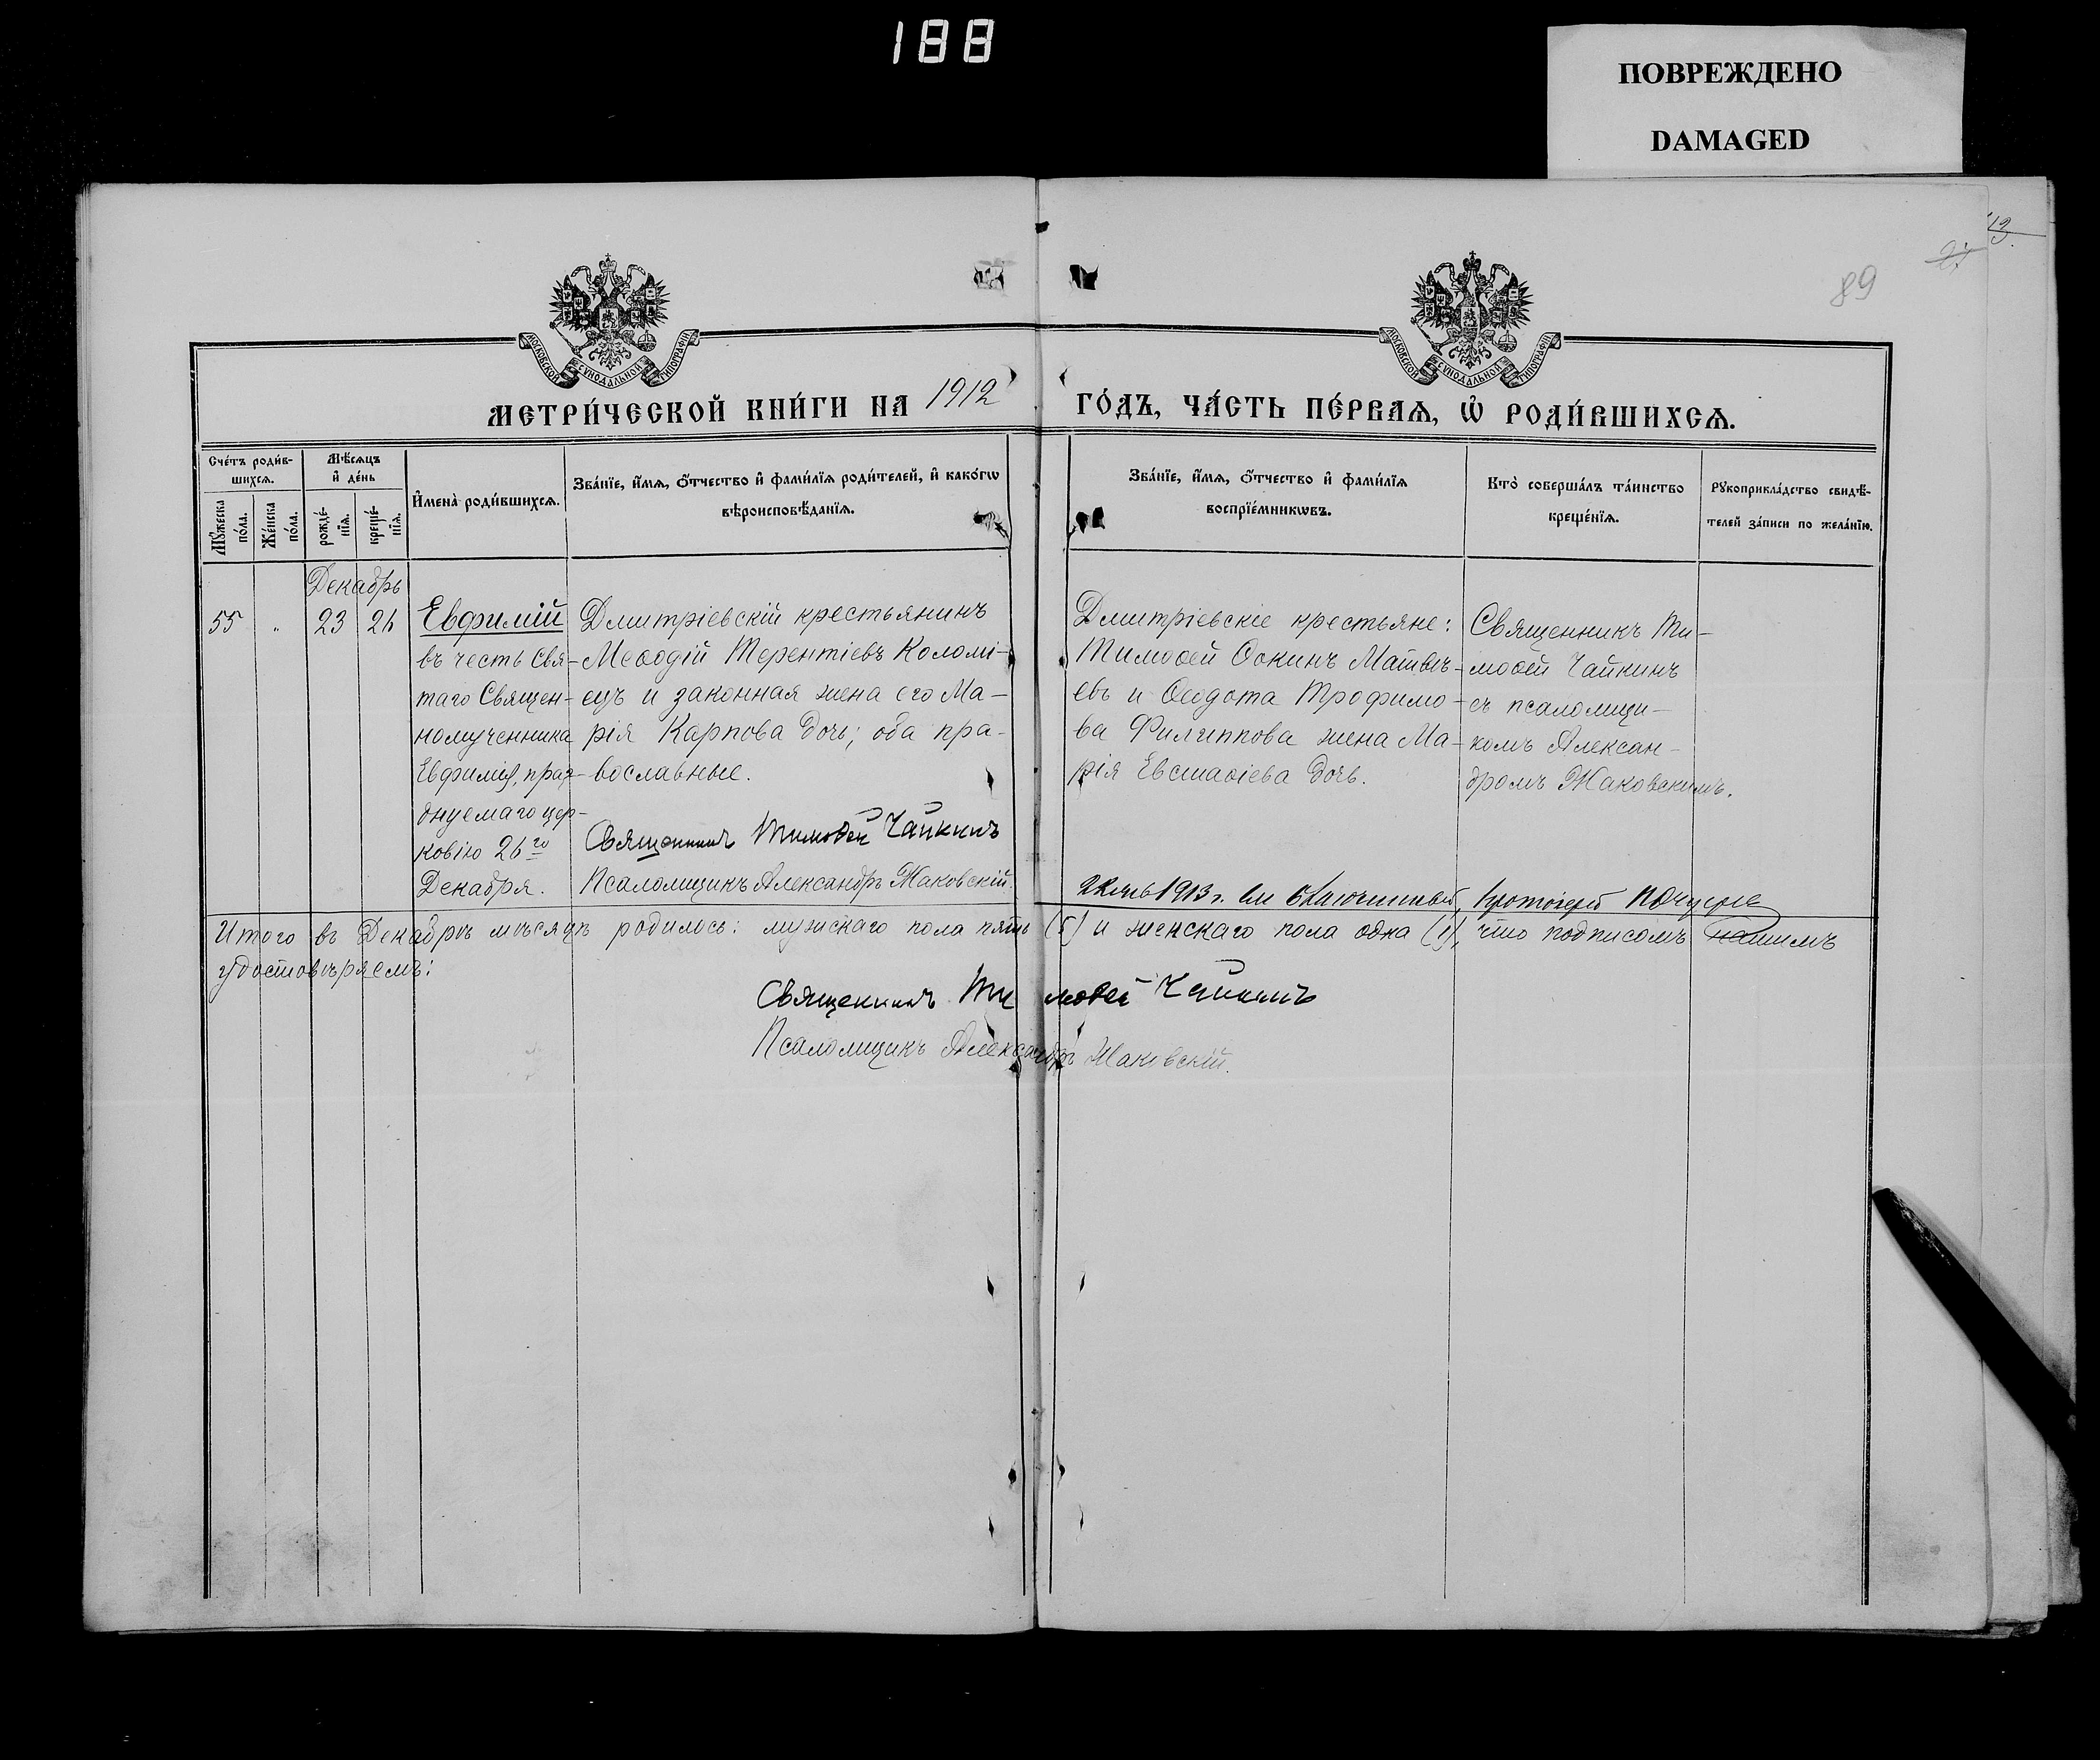 188
ПОВРЕЖДЕНО
DAMAGED
13.
89
МОСКОВСКОЙ СѴНОДАЛЬНОЙ ТИПОГРАФІИ
МОСКОВСКОЙ СѴНОДАЛЬНОЙ ТИПОГРАФІИ
МЕТРИ́ЧЕСКОЙ КНИ́ГИ НА 1912 ГО́ДЪ, ЧА́СТЬ ПЕ́РВАѦ, Ѡ҆ РОДИ́ВШИХСѦ.
Сче́тъ роди́в-
шихсѧ.
Мꙋ́жеска по́ла.
Же́нска по́ла.
Мѣ́сѧцъ и҆ де́нь
рожде́-нїѧ.
креще́-нїѧ.
И҆мена̀ роди́вшихсѧ.
Зва́нїе, и҆́мѧ, ѻ҆́тчество и҆ фами́лїѧ роди́телей, и҆ како́гѡ
вѣроисповѣ́данїѧ.
Зва́нїе, и҆́мѧ, ѻ҆́тчество и҆ фами́лїѧ
воспрїе́мникѡвъ.
Кто̀ соверша́лъ та́инство
креще́нїѧ.
Рꙋкоприкла́дство свидѣ́-
телей за́писи по жела́нїю.
Декабрь
55 " 23 26
Евфимій
въ честь Свя-
таго Священ-
номученника
Евфимія, праз-
днуемаго цер-
ковію 26го
Декабря.
Дмитріевскій крестьянинъ
Меѳодій Терентіевъ Коломі-
ецъ и законная жена его Ма-
рія Карпова дочь; оба пра-
вославные.
Священникъ Тимоѳей Чайкинъ
Псаломщикъ Александръ Маковскій.
Дмитріевскіе крестьяне:
Тимоѳей Ѳокинъ Матвѣ-
евъ и Ѳедота Трофимо-
ва Филиппова жена Ма-
рія Евстаѳіева дочь.
Священникъ Ти-
моѳей Чайкинъ
съ псаломщи-
комъ Алексан-
дромъ Маковскимъ.
1913 г. Протоіерей
Итого въ Декабрѣ мѣсяцѣ родилось: мужскаго пола пять (5) и женскаго пола одна (1), что подписомъ нашимъ
удостовѣряемъ:
Священникъ Тимоѳей Чайкинъ
Псаломщикъ Александръ Маковскій.